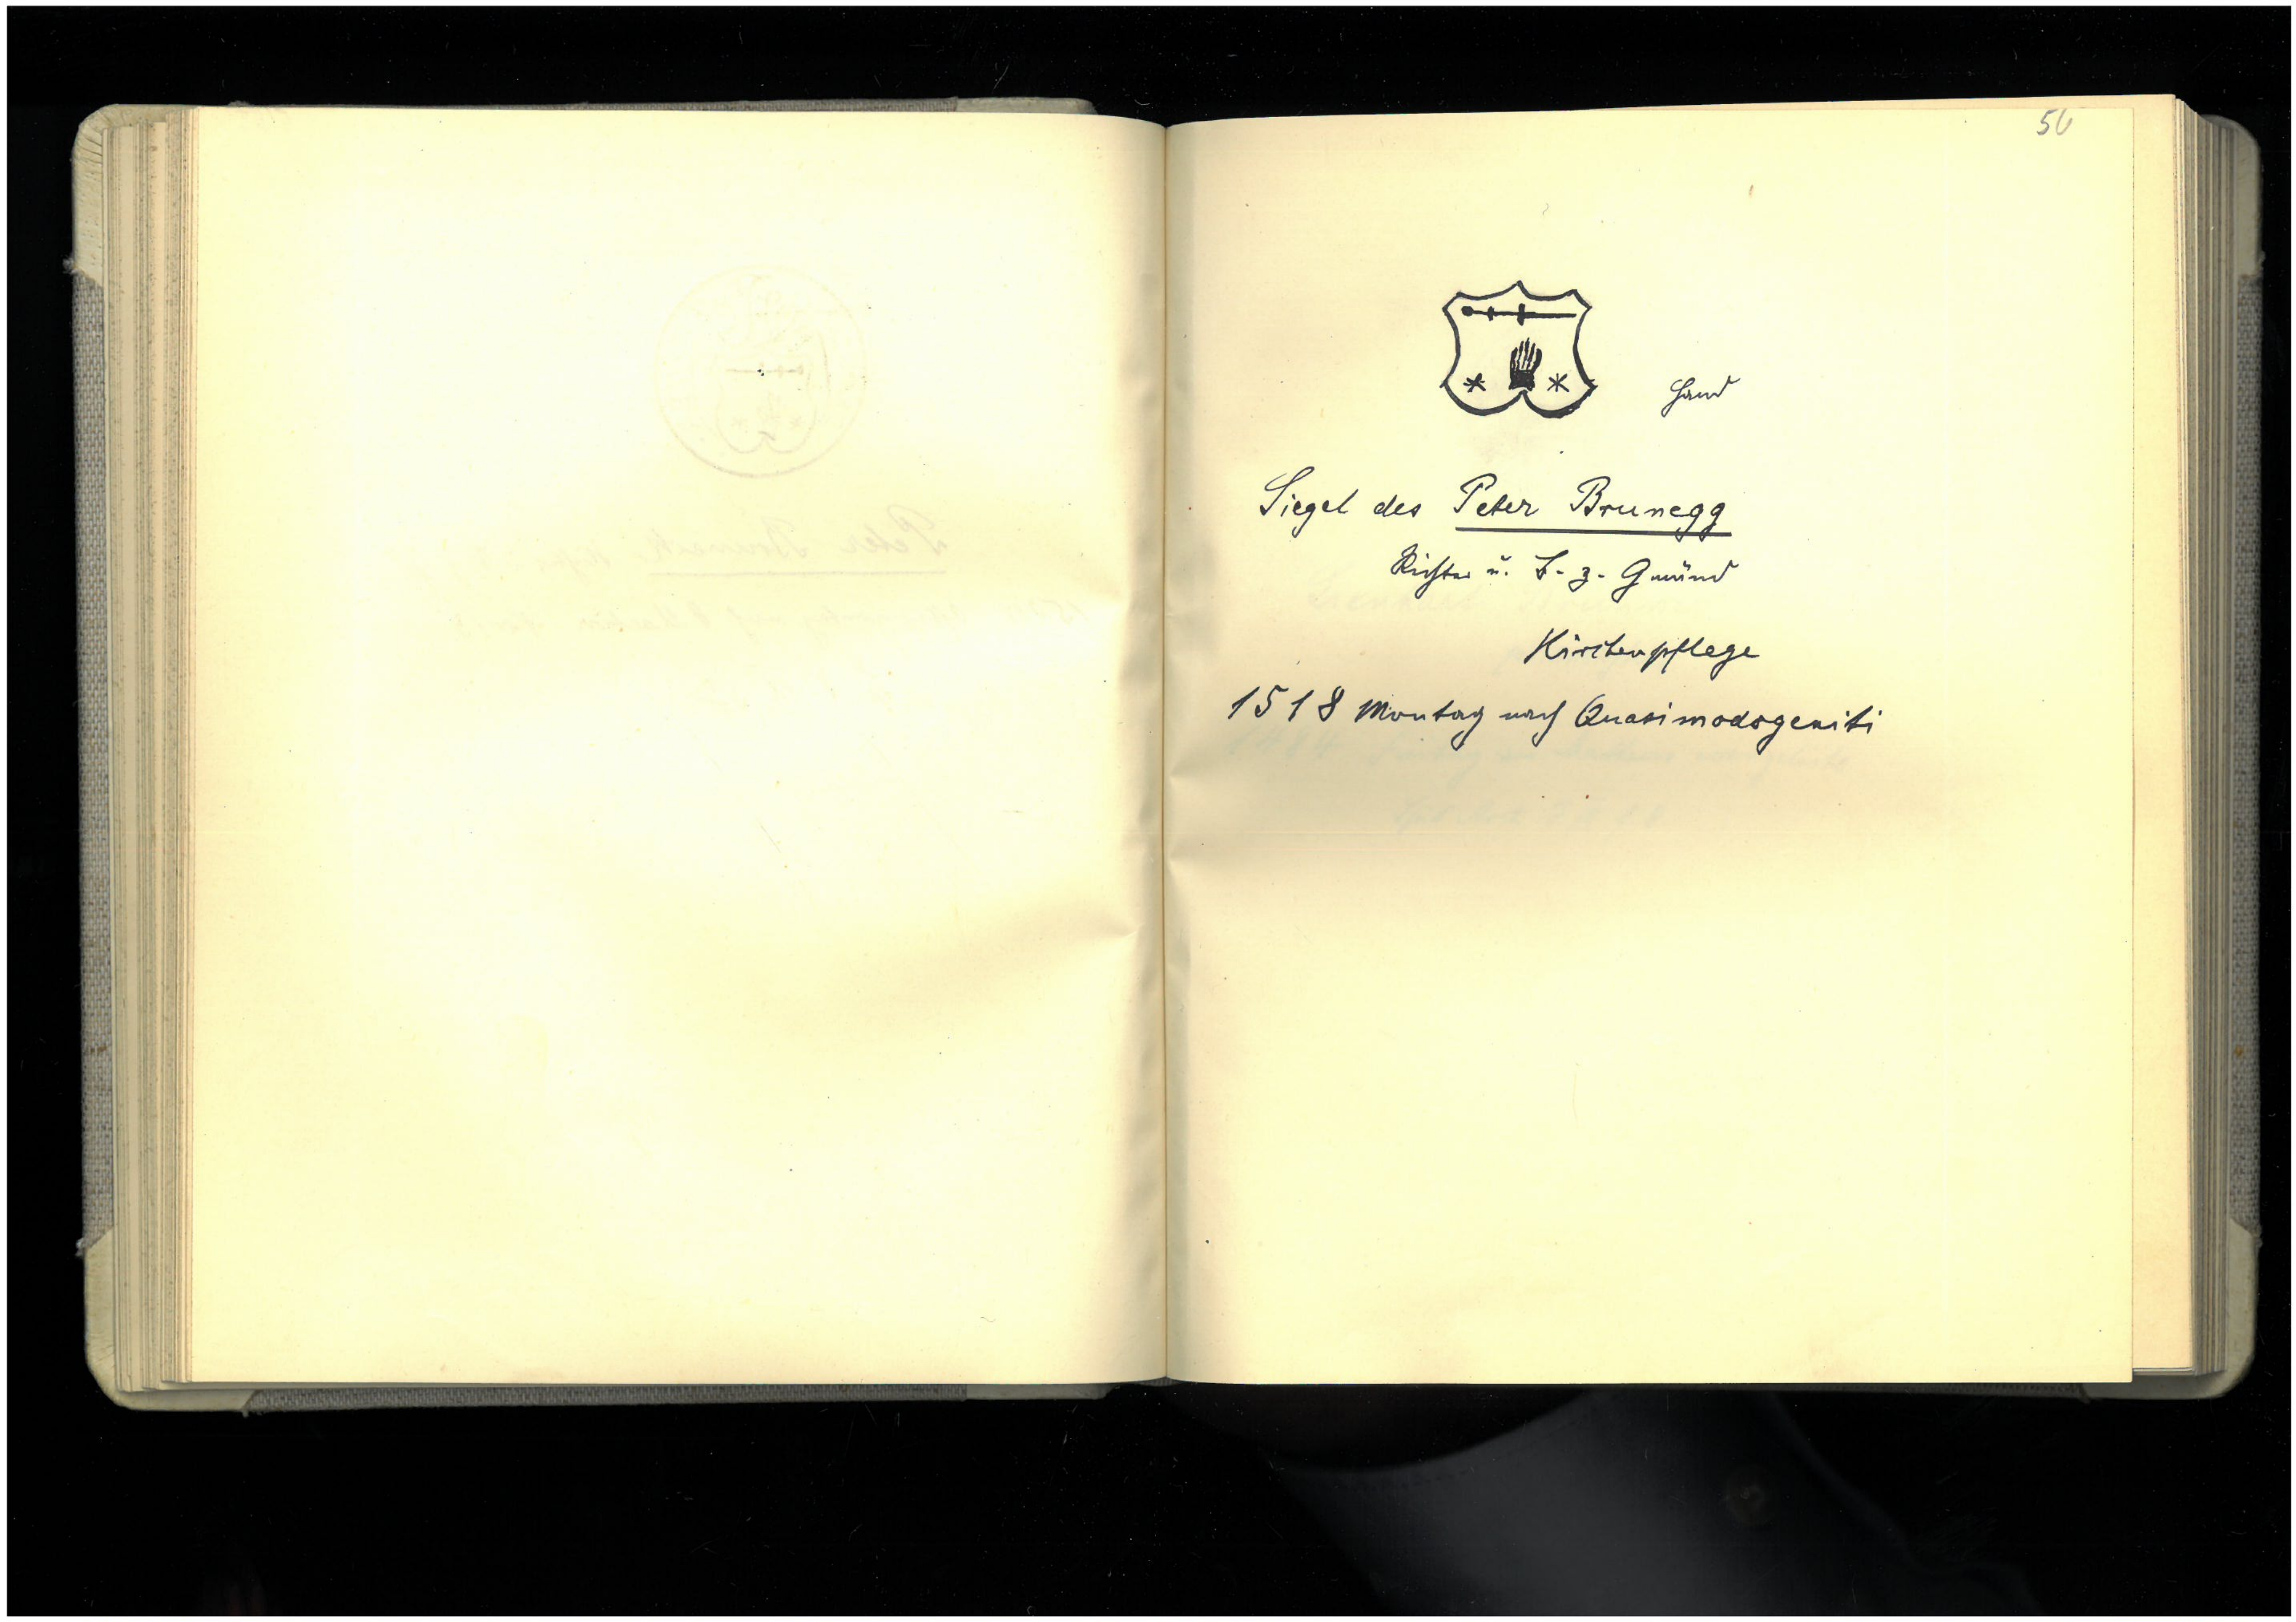 50
Hand
Siegel des Peter Brunegg
Richter u. B. z. Gmünd
Kirchenpflege
1518 Montag nach Quasimodogeniti